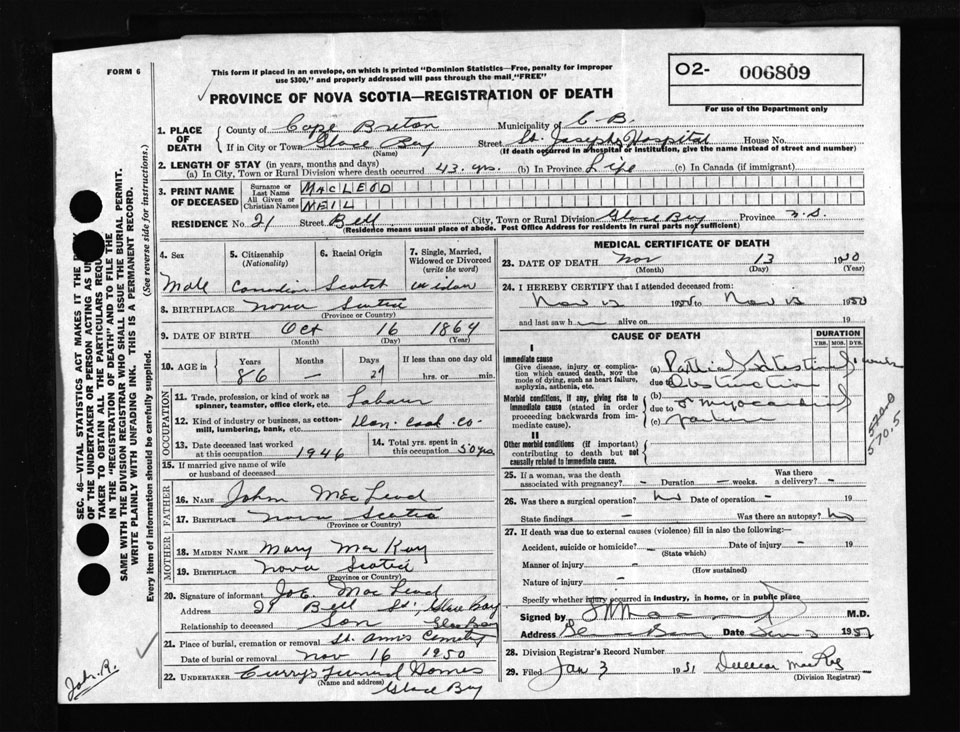 FORM 6
This form if placed in an envelope, on which is printed "Dominion Statistics—Free, penalty for improper
use $300," and properly addressed will pass through the mail "FREE"
PROVINCE OF NOVA SCOTIA—REGISTRATION OF DEATH
O2- 006809
For use of the Department only
1. PLACE OF DEATH
County of Cape Breton Municipality of C B.
If in City or Town Glace Bay Street St. Josephs Hospital House No.
(Name) (If death occurred in a hospital or institution, give the name instead of street and number)
2. LENGTH OF STAY (in years, months and days)
(a) In City, Town or Rural Division where death occurred 43 yrs. (b) In Province Life (c) In Canada (if immigrant)
3. PRINT NAME OF DECEASED
Surname or Last Name MACLEOD
All Given or Christian Names NEIL
RESIDENCE No. 21 Street Bell City, Town or Rural Division Glace Bay Province N.S.
(Residence means usual place of abode. Post Office Address for residents in rural parts not sufficient)
4. Sex
Male
5. Citizenship
(Nationality)
Canadian
6. Racial Origin
Scotch
7. Single, Married,
Widowed or Divorced
(write the word)
8. BIRTHPLACE Nova Scotia
(Province or Country)
9. DATE OF BIRTH Oct 16 1864
(Month) (Day) (Year)
10. AGE in
Years Months Days If less than one day old
86 — 27 hrs. or min.
OCCUPATION
11. Trade, profession, or kind of work as
spinner, teamster, office clerk, etc. Labour
12. Kind of industry or business, as cotton-
mill, lumbering, bank, etc. Dom. Coal Co.
13. Date deceased last worked
at this occupation 1946
14. Total yrs. spent in
this occupation 50 yrs
15. If married give name of wife
or husband of deceased
FATHER
16. NAME John MacLeod
17. BIRTHPLACE Nova Scotia
(Province or Country)
MOTHER
18. MAIDEN NAME Mary MacKay
19. BIRTHPLACE Nova Scotia
(Province or Country)
20. Signature of informant Jos. MacLeod
Address 21 Bell St., Glace Bay
Relationship to deceased Son
Glace Bay
21. Place of burial, cremation or removal St. Anns Cemetery
Date of burial or removal Nov 16 1950
22. UNDERTAKER Curry's Funeral Homes
(Name and address)
Glace Bay
MEDICAL CERTIFICATE OF DEATH
23. DATE OF DEATH Nov 13 1950
(Month) (Day) (Year)
24. I HEREBY CERTIFY that I attended deceased from:
Nov 1950 to Nov 13 1950
and last saw h alive on 19
CAUSE OF DEATH
DURATION
YRS. MOS. DYS.
I
Immediate cause
Give disease, injury or complica-
tion which caused death, NOT the
mode of dying, such as heart failure,
asphyxia, asthenia, etc.
(a) Partial Intestinal
due to Obstruction
Morbid conditions, if any, giving rise to
immediate cause (stated in order
proceeding backwards from im-
mediate cause).
(b)
due to myocardial
(c) failure
II
Other morbid conditions (if important)
contributing to death but not
causally related to immediate cause.
570.5
25. If a woman, was the death
associated with pregnancy? - Duration — weeks. Was there a delivery? -
26. Was there a surgical operation? No Date of operation - 19
State findings - Was there an autopsy? No
27. If death was due to external causes (violence) fill in also the following:—
Accident, suicide or homicide? — Date of injury — 19
(State which)
Manner of injury -
(How sustained)
Nature of injury -
Specify whether injury occurred in industry, in home, or in public place
Signed by M.D.
Address Glace Bay Date 1951
28. Division Registrar's Record Number
29. Filed Jan 3 1951 Duncan MacRae
(Division Registrar)
SEC. 46—VITAL STATISTICS ACT MAKES IT THE
OF THE UNDERTAKER OR PERSON ACTING AS
TAKER TO OBTAIN ALL THE PARTICULARS
IN THE "REGISTRATION OF DEATH" AND TO FILE THE
SAME WITH THE DIVISION REGISTRAR WHO SHALL ISSUE THE BURIAL PERMIT.
WRITE PLAINLY WITH UNFADING INK. THIS IS A PERMANENT RECORD.
Every item of information should be carefully supplied. (See reverse side for instructions.)
Job. R.